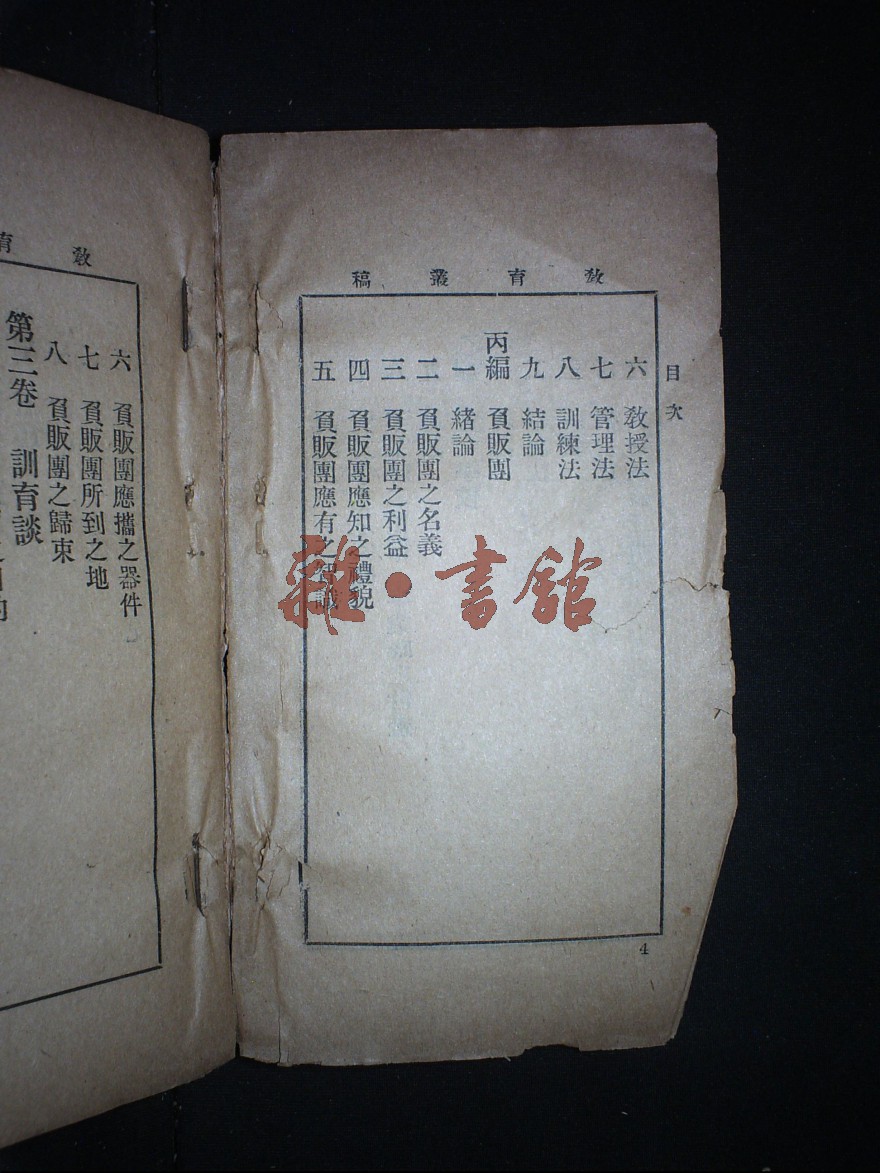 敎育叢稿
目次
六 敎授法
七 管理法
八 訓練法
九 結論
丙編 負販團
一 緒論
二 負販團之名義
三 負販團之利益
四 負販團應知之禮貌
五 負販團應有之智識
4
敎育
六 負販團應攜之器件
七 負販團所到之地
八 負販團之歸束
第三卷 訓育談
雜·書館